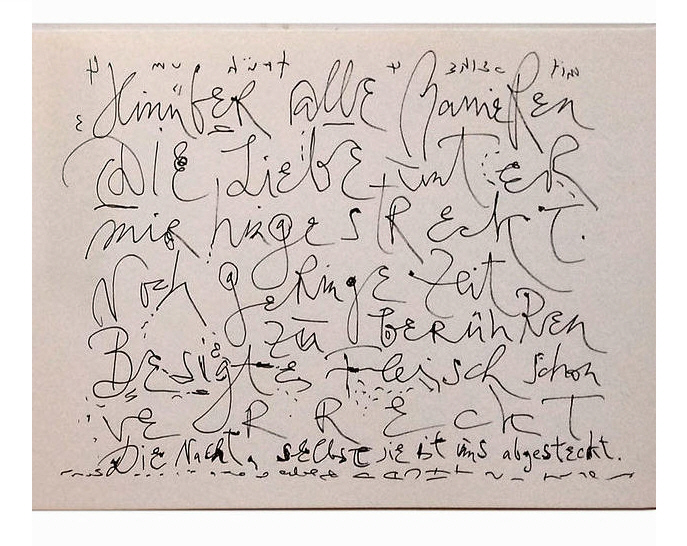 "Hinüber alle Barrieren
Die Liebe unter
mir hingestreckt.
Noch geringe Zeit
zu berühren
Besiegtes Fleisch schon
verreckt
Die Nacht, selbst sie ist uns abgesteckt.